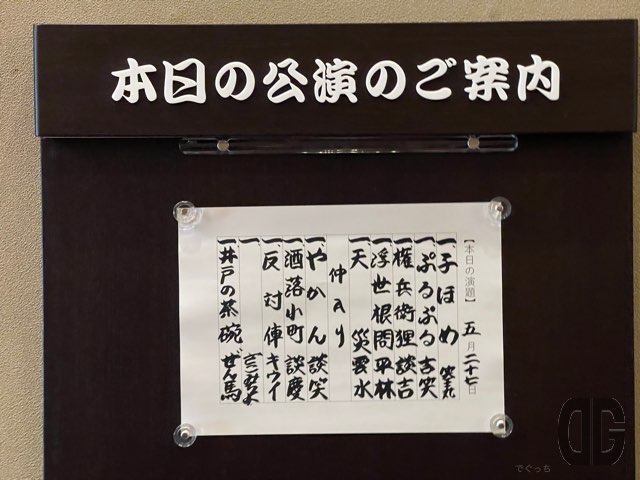 本日の公演のご案内
【本日の演題】 五月二十七日
一、子ほめ 笑金丸
一、ぷるぷる 吉笑
一、権兵衛狸 談吉
一、浮世根問 平林
一、天災 雲水
仲入り
一、やかん 談笑
一、洒落小町 談慶
一、反対俥 キウイ
一、
一、井戸の茶碗 ぜん馬
DG
でぐっち